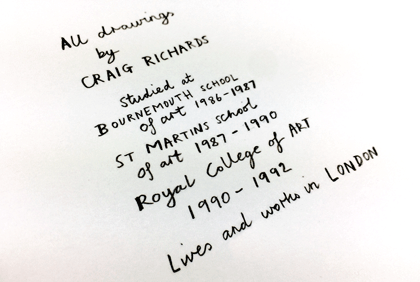 All drawings
by
CRAIG RICHARDS
Studied at
BOURNEMOUTH SCHOOL
of art 1986-1987
ST MARTINS school
of art 1987-1990
Royal College of ART
1990-1992
Lives and works in LONDON